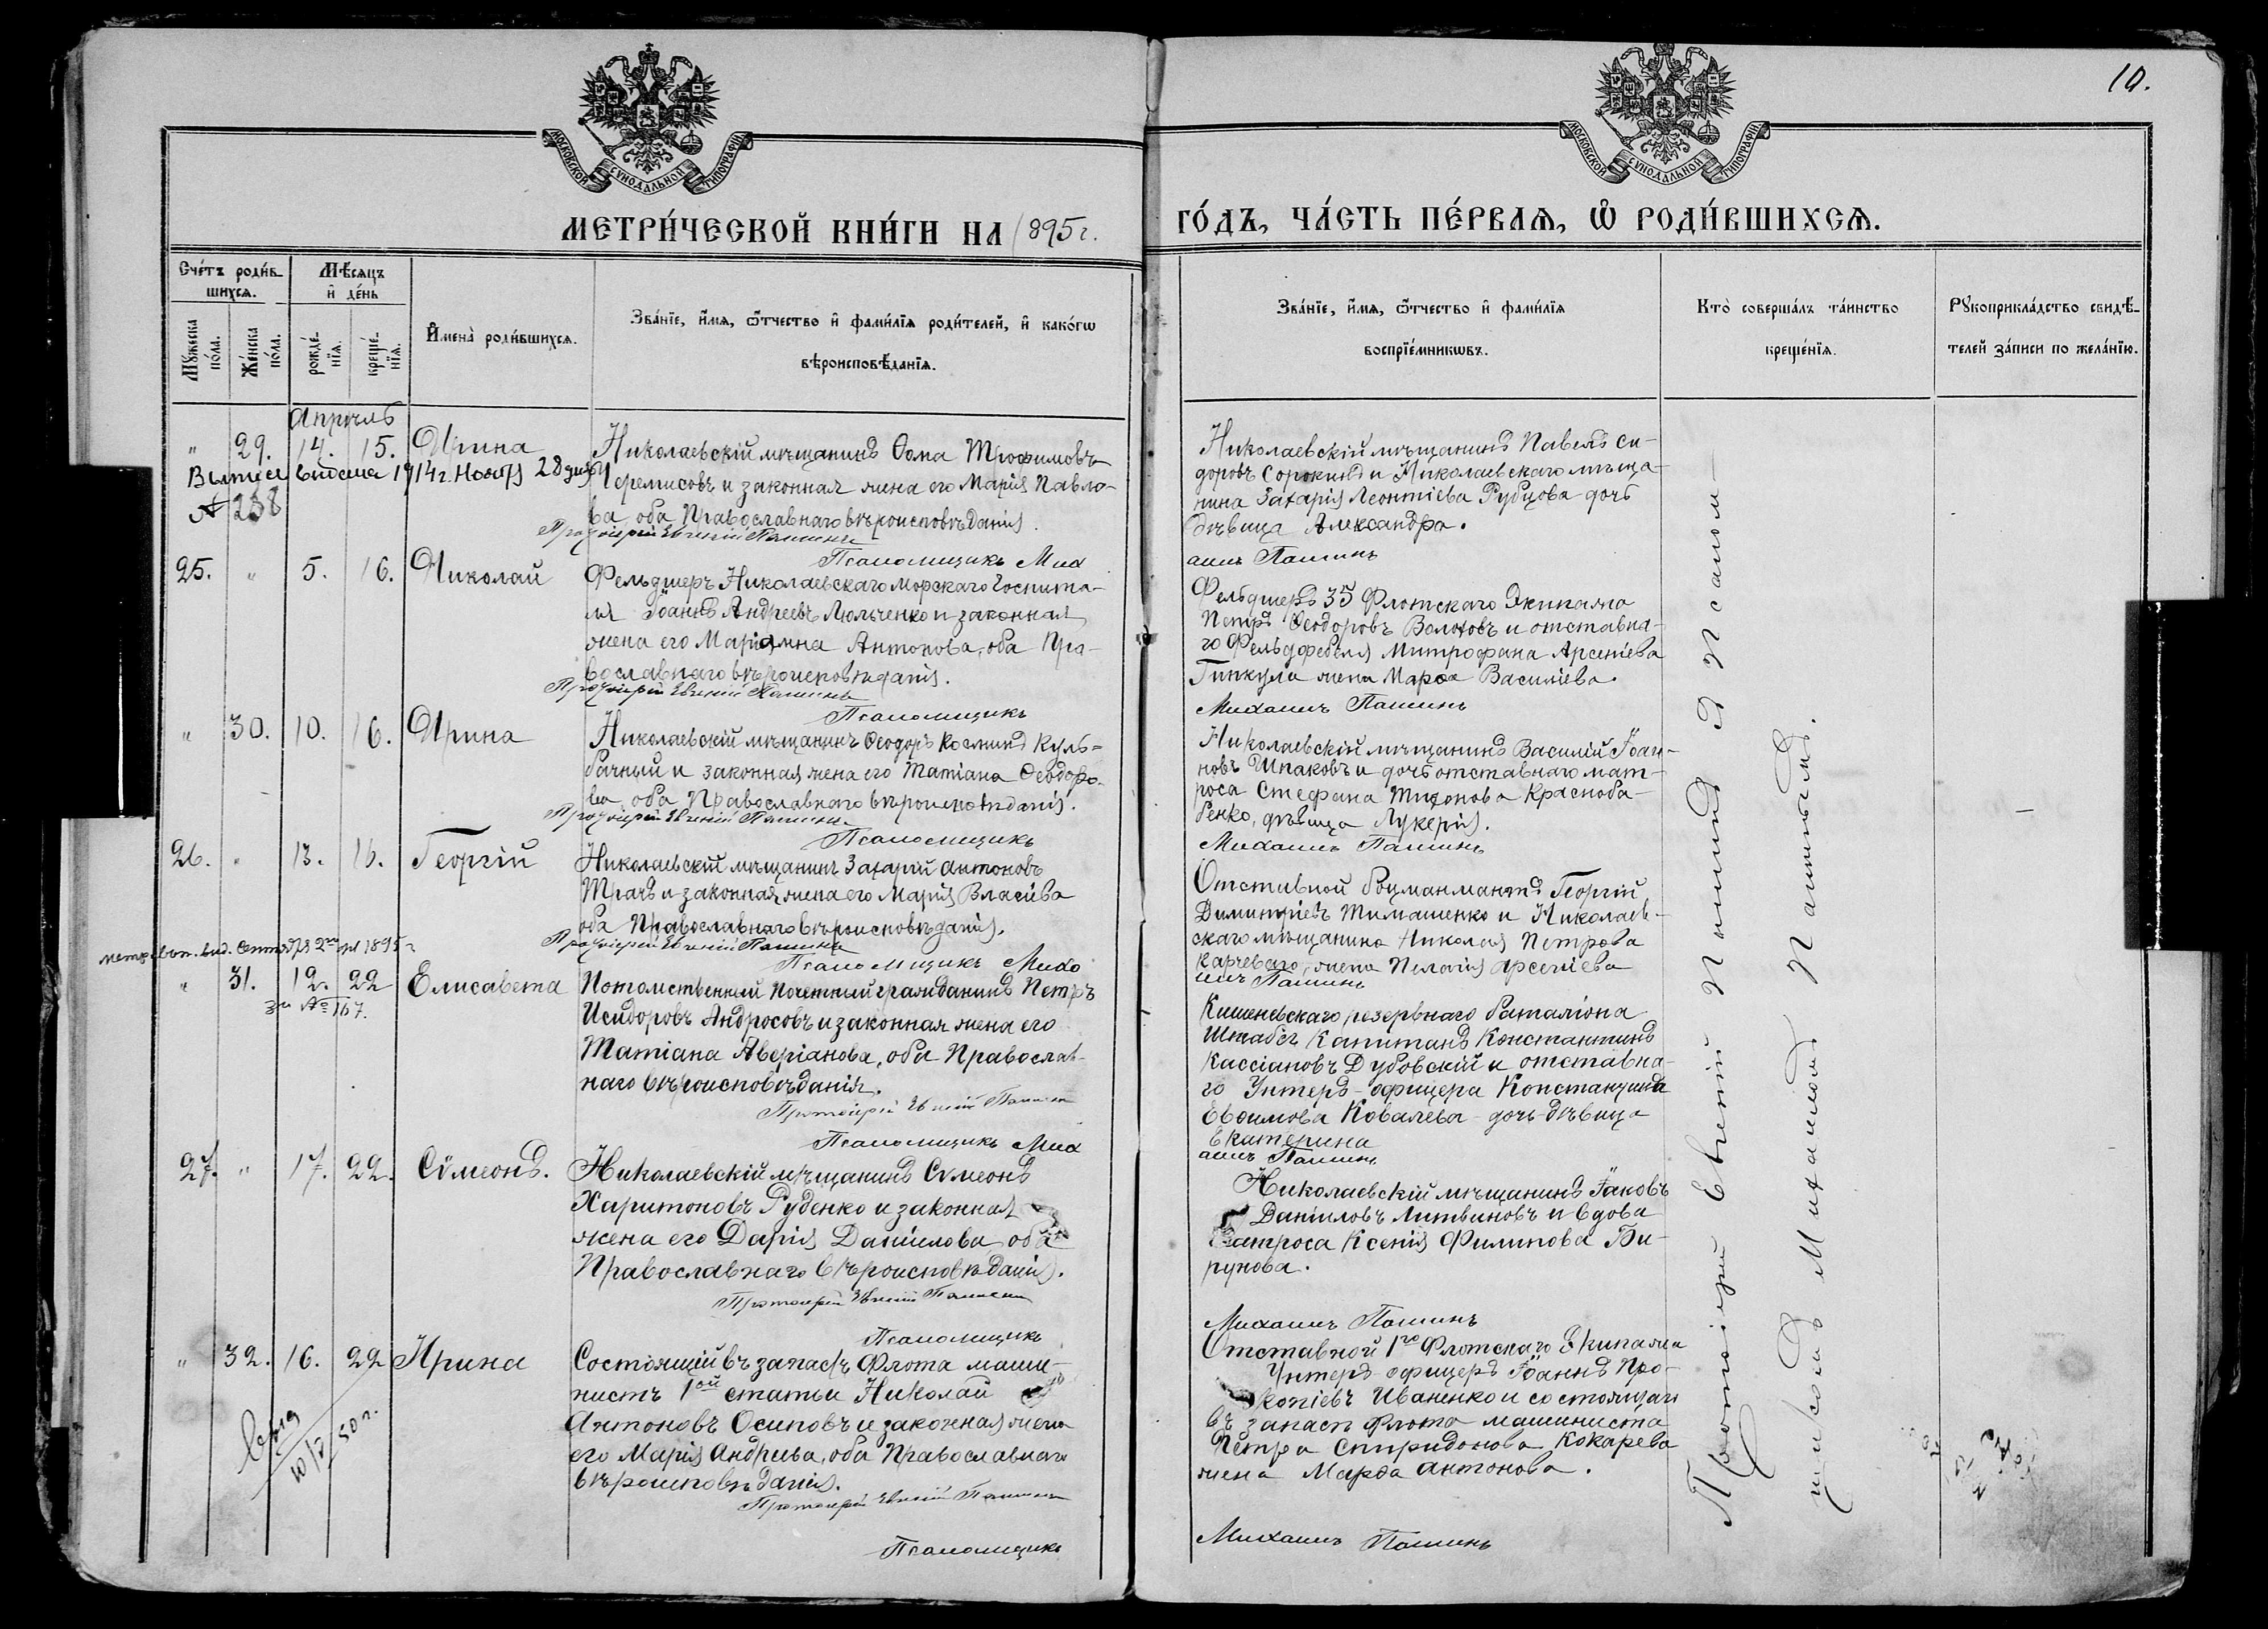 10.
МОСКОВСКОЙ СѴНОДАЛЬНОЙ ТИПОГРАФІИ
МОСКОВСКОЙ СѴНОДАЛЬНОЙ ТИПОГРАФІИ
МЕТРИ́ЧЕСКОЙ КНИ́ГИ НА 1895 г.
ГО́ДЪ, ЧА́СТЬ ПЕ́РВАѦ, Ѡ҆ РОДИ́ВШИХСѦ.
Сче́тъ роди́в-
шихсѧ.
Мѣ́сѧцъ
и҆ де́нь
Мꙋ́жеска
по́ла.
Же́нска
по́ла.
рожде́-
нїѧ.
креще́-
нїѧ.
И҆мена̀ роди́вшихсѧ.
Зва́нїе, и҆́мѧ, ѻ҆́тчество и҆ фами́лїѧ роди́телей, и҆ како́гѡ
вѣроисповѣ́данїѧ.
Зва́нїе, и҆́мѧ, ѻ҆́тчество и҆ фами́лїѧ
воспрїе́мникѡвъ.
Кто̀ соверша́лъ та́инство
креще́нїѧ.
Рꙋкоприкла́дство свидѣ́-
телей за́писи по жела́нїю.
Апрѣль
" 29. 14. 15. Ирина
Николаевскій мѣщанинъ Ѳома Трофимовъ
Черемисовъ и законная жена его Марія Павло-
ва, оба Православнаго вѣроисповѣданія.
Выпись выдана 1914 г. Нояб 28 дня
№ 238
Протоіерей Евгеній Пашинъ
Псаломщикъ Мих
Николаевскій мѣщанинъ Павелъ Си-
доровъ Сорокинъ и Николаевскаго мѣща-
нина Захарія Леонтіева Рубцова дочь
дѣвица Александра.
аилъ Пашинъ
25. " 5. 16. Николай
Фельдшеръ Николаевскаго Морскаго Госпита-
ля Іоаннъ Андреевъ Люльченко и законная
жена его Маріамна Антонова, оба Пра-
вославнаго вѣроисповѣданія.
Протоіерей Евгеній Пашинъ
Псаломщикъ
Фельдшеръ 35 Флотскаго Экипажа
Петръ Ѳеодоровъ Волоховъ и отставна-
го Фельдфебеля Митрофана Арсеніева
Гинкула жена Марѳа Василіева.
Михаилъ Пашинъ
" 30. 10. 16. Ирина
Николаевскій мѣщанинъ Ѳеодоръ Косминъ Куль-
бачный и законная жена его Татіана Ѳеодоро-
ва, оба Православнаго вѣроисповѣданія.
Протоіерей Евгеній Пашинъ
Псаломщикъ
Николаевскій мѣщанинъ Василій Іоан-
новъ Шпаковъ и дочь отставнаго мат-
роса Стефана Тихонова Красноба-
бенко, дѣвица Лукерія.
Михаилъ Пашинъ
26. " 13. 16. Георгій
Николаевскій мѣщанинъ Захарій Антоновъ
Ткачъ и законная жена его Марія Власіева
оба Православнаго вѣроисповѣданія.
Протоіерей Евгеній Пашинъ
Псаломщикъ Миха
Отставной боцманматъ Георгій
Димитріевъ Тимашенко и Николаев-
скаго мѣщанина Николая Петрова
Карчеваго, жена Пелагія Арсеніева
илъ Пашинъ
метр. вып. выд. Сентября 2го дня 1895 г
за № 167.
" 31. 12. 22 Елисавета
Потомственный почетный гражданинъ Петръ
Исидоровъ Андросовъ и законная жена его
Татіана Аверіанова, оба Православ-
наго вѣроисповѣданія.
Протоіерей Евгеній Пашинъ
Псаломщикъ Мих
Кишеневскаго резервнаго баталіона
Штабсъ Капитанъ Константинъ
Кассіановъ Дубовскій и отставна-
го Унтеръ-офицера Константина
Евѳимова Ковалева дочь дѣвица
Екатерина
аилъ Пашинъ
27. " 17. 22. Сѵмеонъ.
Николаевскій мѣщанинъ Сѵмеонъ
Харитоновъ Руденко и законная
жена его Дарія Даніилова, оба
Православнаго вѣроисповѣданія.
Протоіерей Евгеній Пашинъ
Псаломщикъ
Николаевскій мѣщанинъ Іаковъ
Даніиловъ Литвиновъ и вдова
матроса Ксенія Филипова Би-
рукова.
Михаилъ Пашинъ
" 32. 16. 22 Ирина
Состоящій въ запасѣ Флота маши-
нистъ 1ой статьи Николай
Антоновъ Осиповъ и законная жена
его Марія Андреева, оба Православнаго
вѣроисповѣданія.
Протоіерей Евгеній Пашинъ
Псаломщикъ
Отставной 1го Флотскаго Экипажа
Унтеръ офицеръ Іоаннъ Про-
копіевъ Иваненко и состоящаго
въ запасѣ Флота машиниста
Петра Спиридонова Кокарева
жена Марѳа Антонова.
Михаилъ Пашинъ
Протоіерей Евгеній Пашинъ и Псалом-
щикомъ Михаиломъ Пашинымъ.